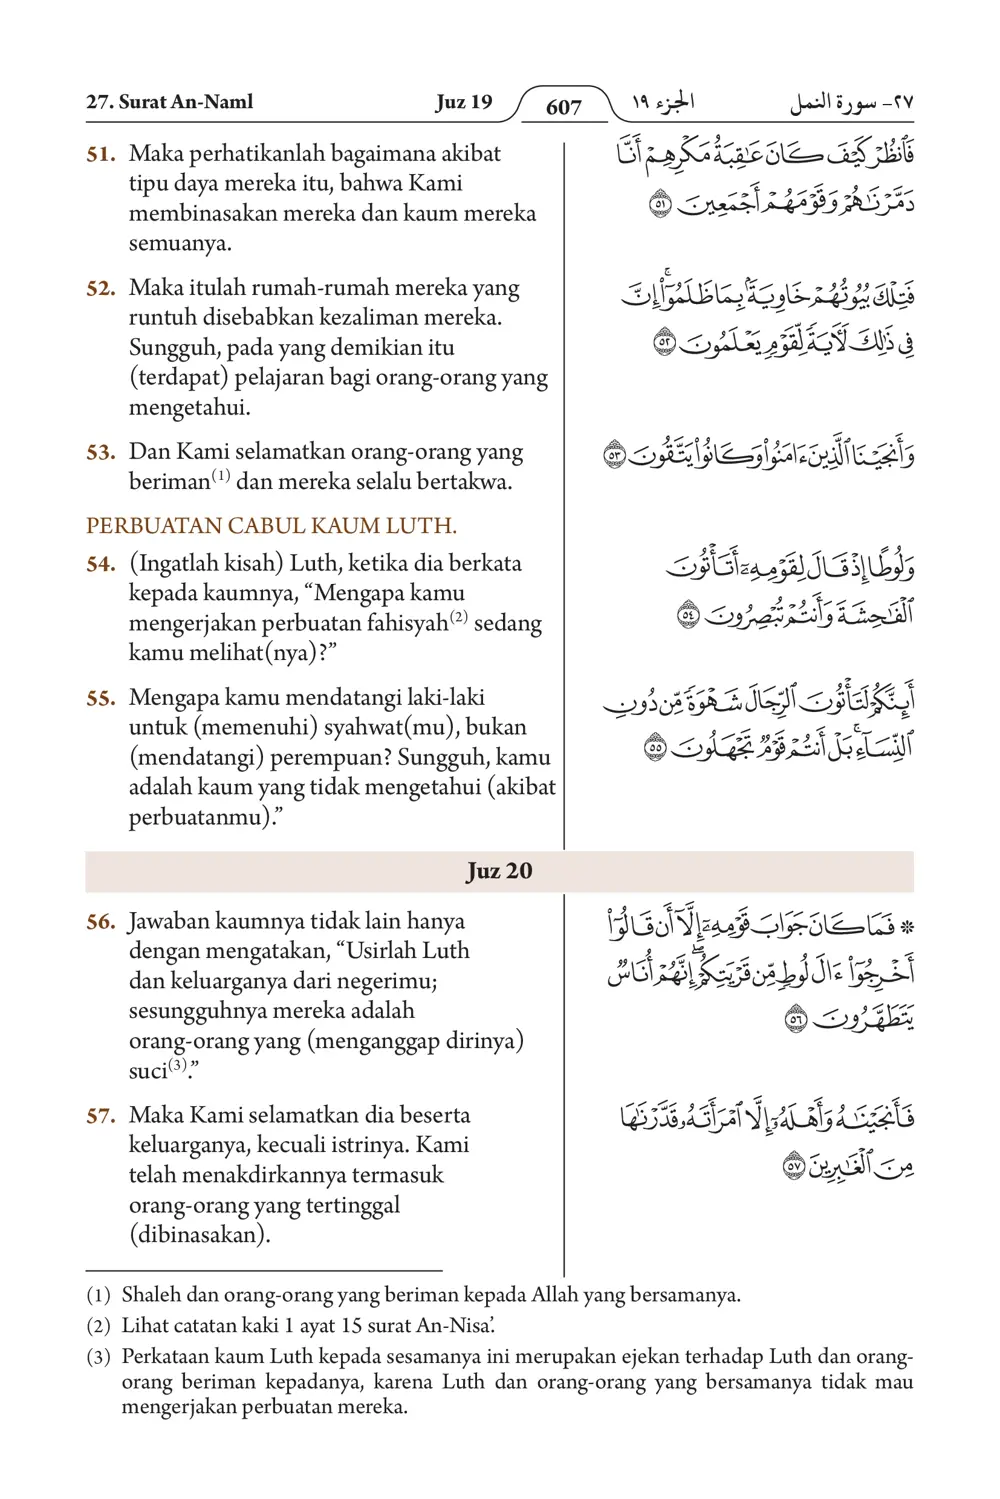 27. Surat An-Naml Juz 19 607 الجزء ١٩ ٢٧- سورة النمل
51. Maka perhatikanlah bagaimana akibat
tipu daya mereka itu, bahwa Kami
membinasakan mereka dan kaum mereka
semuanya.
فَٱنظُرْ كَيْفَ كَانَ عَٰقِبَةُ مَكْرِهِمْ أَنَّا
دَمَّرْنَٰهُمْ وَقَوْمَهُمْ أَجْمَعِينَ ٥١
52. Maka itulah rumah-rumah mereka yang
runtuh disebabkan kezaliman mereka.
Sungguh, pada yang demikian itu
(terdapat) pelajaran bagi orang-orang yang
mengetahui.
فَتِلْكَ بُيُوتُهُمْ خَاوِيَةًۢ بِمَا ظَلَمُوٓا۟ ۗ إِنَّ
فِى ذَٰلِكَ لَءَايَةً لِّقَوْمٍ يَعْلَمُونَ ٥٢
53. Dan Kami selamatkan orang-orang yang
beriman(1) dan mereka selalu bertakwa.
وَأَنجَيْنَا ٱلَّذِينَ ءَامَنُوا۟ وَكَانُوا۟ يَتَّقُونَ ٥٣
PERBUATAN CABUL KAUM LUTH.
54. (Ingatlah kisah) Luth, ketika dia berkata
kepada kaumnya, “Mengapa kamu
mengerjakan perbuatan fahisyah(2) sedang
kamu melihat(nya)?”
وَلُوطًا إِذْ قَالَ لِقَوْمِهِۦٓ أَتَأْتُونَ
ٱلْفَٰحِشَةَ وَأَنتُمْ تُبْصِرُونَ ٥٤
55. Mengapa kamu mendatangi laki-laki
untuk (memenuhi) syahwat(mu), bukan
(mendatangi) perempuan? Sungguh, kamu
adalah kaum yang tidak mengetahui (akibat
perbuatanmu).”
أَئِنَّكُمْ لَتَأْتُونَ ٱلرِّجَالَ شَهْوَةً مِّن دُونِ
ٱلنِّسَآءِ ۚ بَلْ أَنتُمْ قَوْمٌ تَجْهَلُونَ ٥٥
Juz 20
56. Jawaban kaumnya tidak lain hanya
dengan mengatakan, “Usirlah Luth
dan keluarganya dari negerimu;
sesungguhnya mereka adalah
orang-orang yang (menganggap dirinya)
suci(3).”
* فَمَا كَانَ جَوَابَ قَوْمِهِۦٓ إِلَّآ أَن قَالُوٓا۟
أَخْرِجُوٓا۟ ءَالَ لُوطٍ مِّن قَرْيَتِكُمْ ۖ إِنَّهُمْ أُنَاسٌ
يَتَطَهَّرُونَ ٥٦
57. Maka Kami selamatkan dia beserta
keluarganya, kecuali istrinya. Kami
telah menakdirkannya termasuk
orang-orang yang tertinggal
(dibinasakan).
فَأَنجَيْنَٰهُ وَأَهْلَهُۥٓ إِلَّا ٱمْرَأَتَهُۥ قَدَّرْنَٰهَا
مِنَ ٱلْغَٰبِرِينَ ٥٧
(1) Shaleh dan orang-orang yang beriman kepada Allah yang bersamanya.
(2) Lihat catatan kaki 1 ayat 15 surat An-Nisa’.
(3) Perkataan kaum Luth kepada sesamanya ini merupakan ejekan terhadap Luth dan orang-
orang beriman kepadanya, karena Luth dan orang-orang yang bersamanya tidak mau
mengerjakan perbuatan mereka.